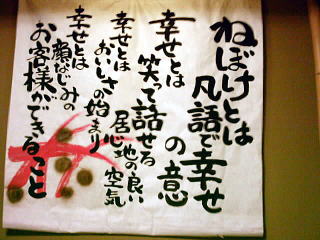 ねぼけとは
凡語で幸せ
の意
幸せとは
笑って話せる
居心地の良い
空気
幸せとは
おいしさの始まり
幸せとは
顔なじみの
お客様ができること